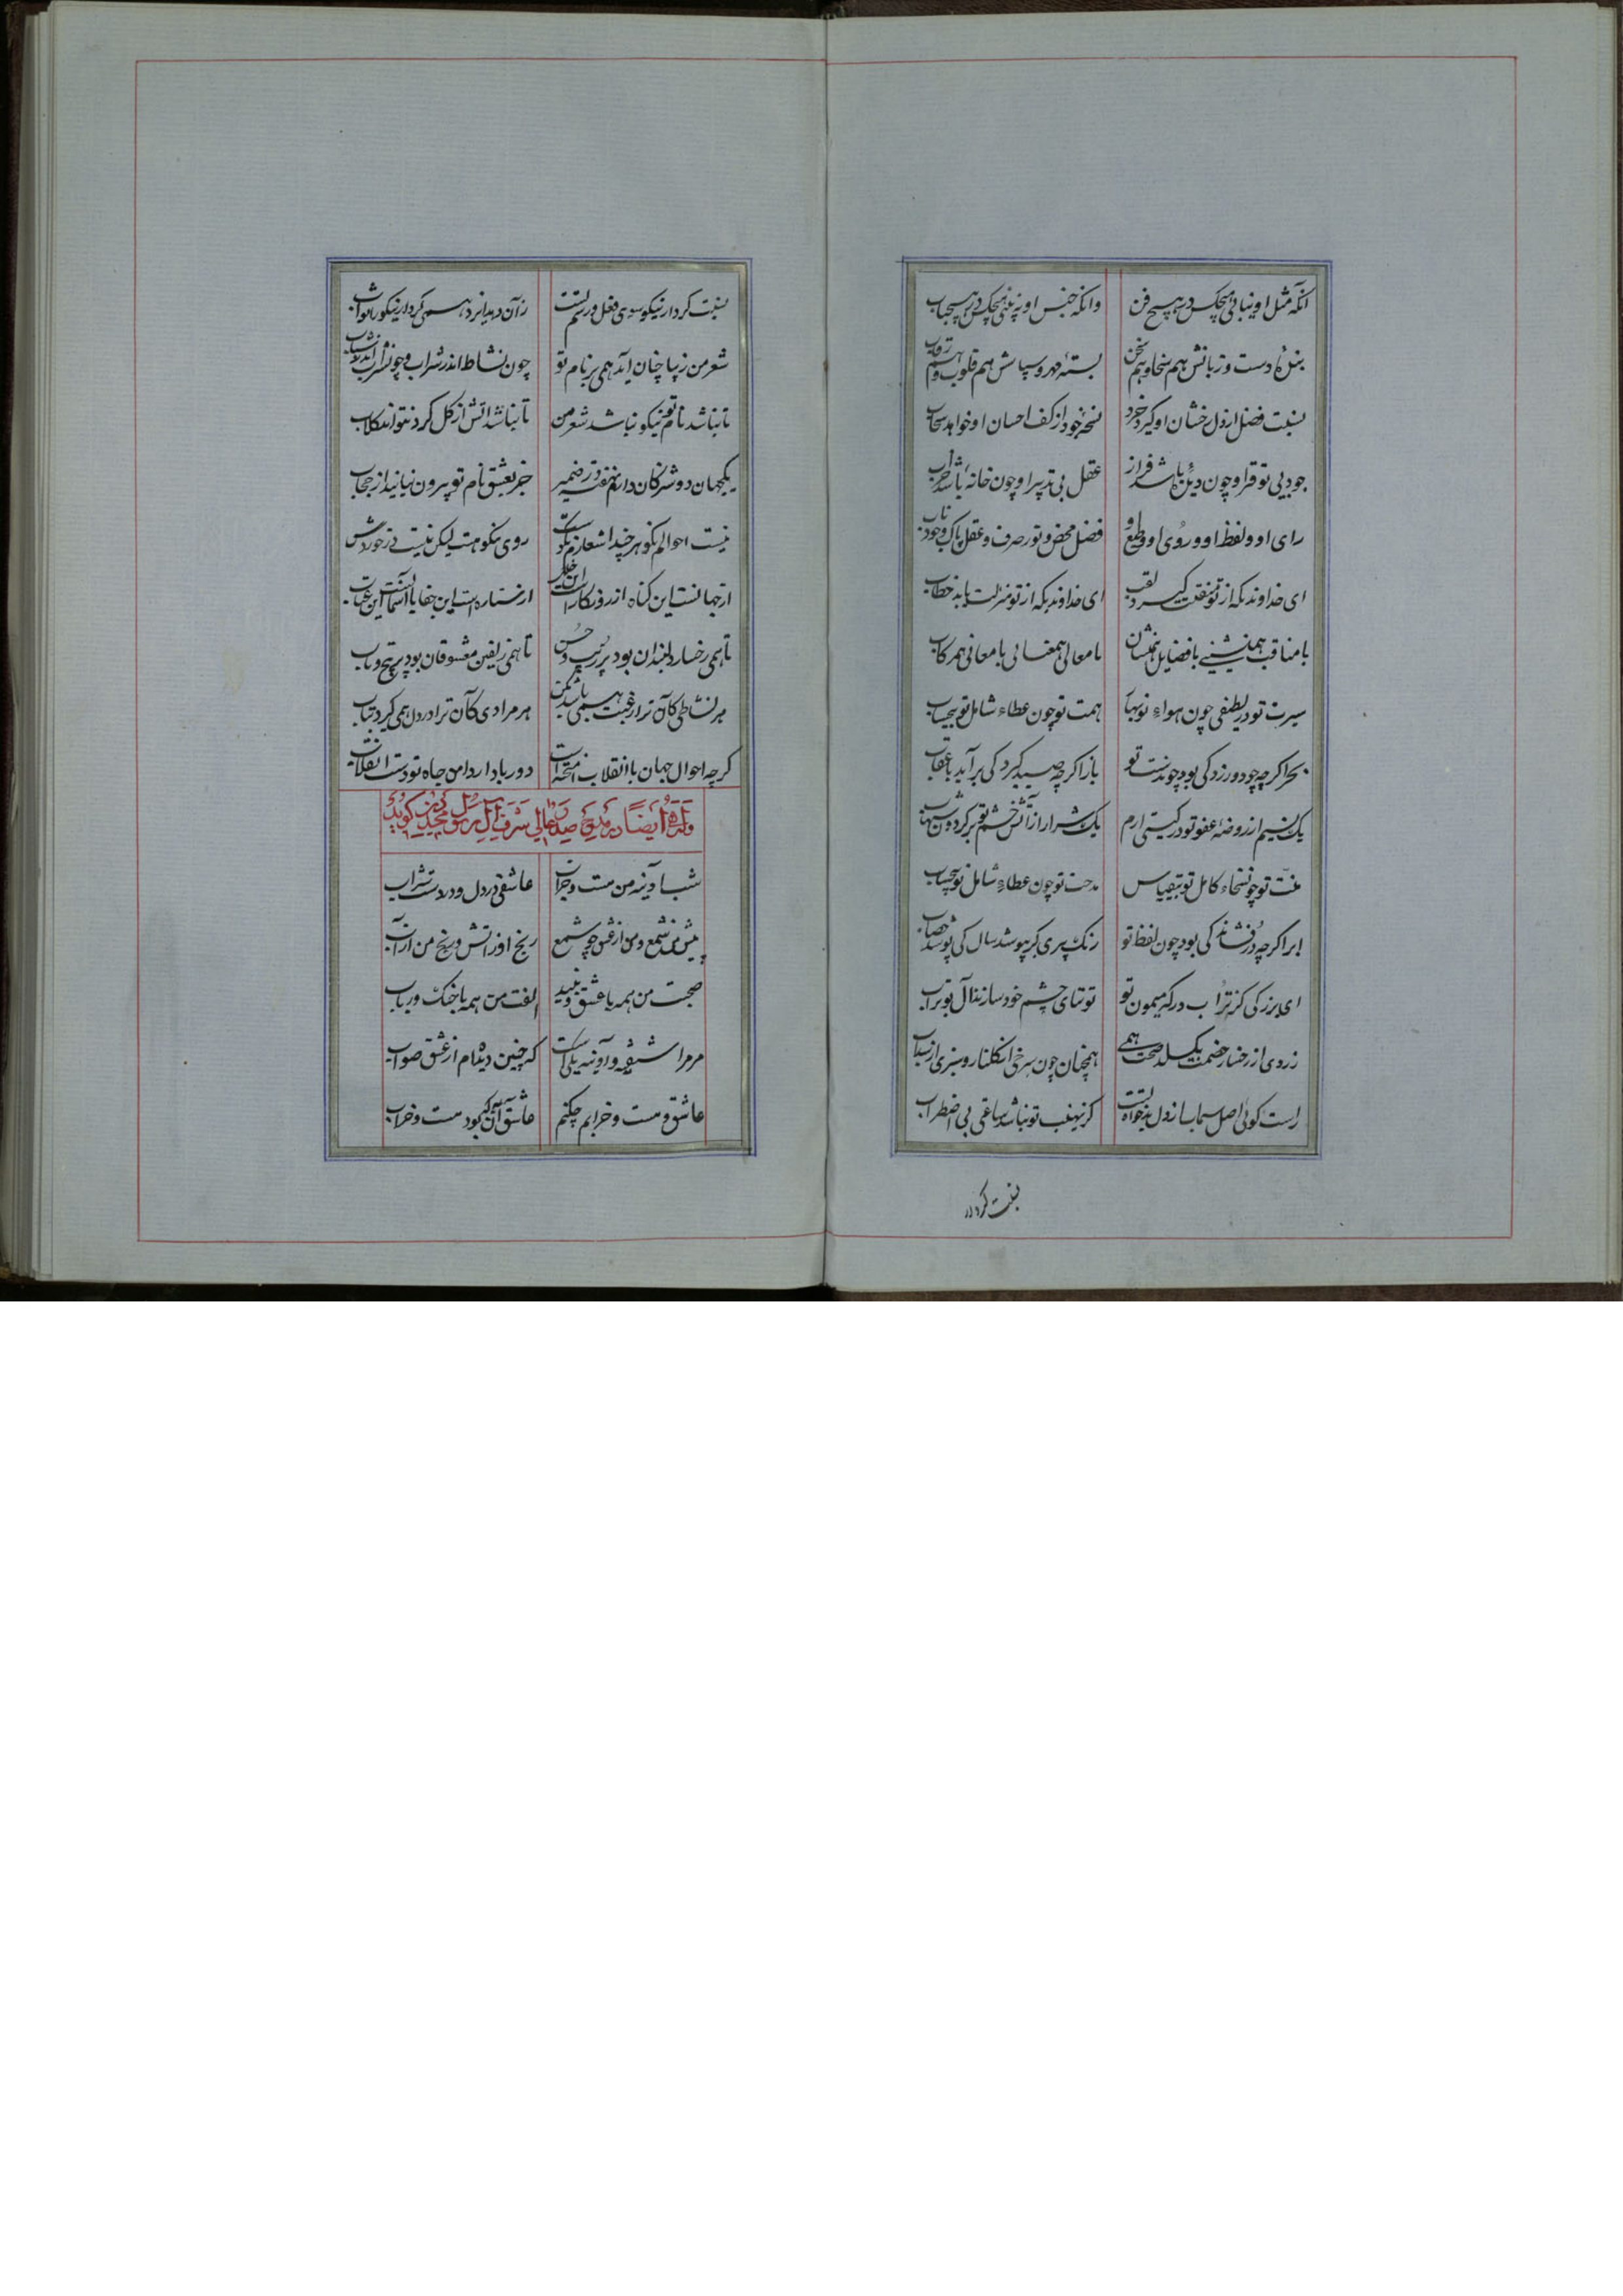 آنکه مثل او نیابی هیچکس در هیچ فن وانکه جنس او نه بینی هیچکس در هیچ باب
بندهٔ دست و زبانش هم سخا و هم سخن بستهٔ مهر و سپاسش هم قلوب و هم رقاب
نسبت فضل از دل خشان او گیرد خرد نسخهٔ جود از کف احسان او خواهد سحاب
جود بی توقیر او چون دیدهٔ باشد فراز عقل بی تدبیر او چون خانهٔ باشد خراب
رای او و لفظ او و روی او و طبع او فضل محض و نور صرف و عقل پاک و جود ناب
ای خداوندیکه از تو منقبت گیرد لقب ای خداوندیکه از تو منزلت یابد خطاب
با مناقب همنشینی با فضایل همنشان با معالی همعنانی با معانی همرکاب
سیرت تو در لطیفی چون هواء نوبهار همت تو چون عطاء شامل تو بیحساب
بحر اگرچه جود ورزد کی بود چون دست تو باز اگرچه صید گیرد کی برآید با عقاب
یک نسیم از روضهٔ عفو تو در گیتی ارم یک شرار از آتش خشم تو بر گردون شهاب
منت تو چون سخاء کامل تو بیقیاس مدحت تو چون عطاء شامل تو بیحساب
ابر اگرچه در فشاند کی بود چون لفظ تو رنگ پیری گر بپوشد سال کی پوشد خضاب
ای بزرگی کز تراب درگه میمون تو توتیای چشم خود سازند آل بوتراب
زردی از رخسار خصمت نگسلد صحت همی همچنان چون سرخی از گلنار و سبزی از سداب
راست گوئی اصل سیماب از دل بدخواه تست کز نهیب تو نباشد ساعتی بی اضطراب
نسبت کردار
نسبت کردار نیکو سوی فعل و رسم تست زآن دهد ایزد همی کردار نیکو را ثواب
شعر من زیبا چنان آید همی بر نام تو چون نشاط اندر شراب و چون شراب اندر شباب
تا نباشد نام تو نیکو نباشد شعر من تا نباشد آتش از گل کرد نتواند گلاب
یکجهان دوشیزگان دارم نهفته در ضمیر جز بعشق نام تو بیرون نیایند از حجاب
نیست احوالم نکو هر چند اشعارم نکوست روی نیکو هست لیکن نیست در خوردش
از جهانست این گناه از روزگارست این خلل از ستاره است این جفا یا ز آسمانست این عتاب
تا همی رخسار دلبندان بود پر زیب و حسن تا همی زلفین معشوقان بود پر پیچ و تاب
هر نشاطی کآن ترا رغبت همی باشد بکن هر مرادی کآن ترا در دل همی گردد بیاب
گرچه احوال جهان با انقلاب آمیخته است دور باد از دامن جاه تو دست انقلاب
وله ایضاً در مدیح صدر معالی شرف آل رسول مجد دین گوید
شب آدینه من مست و خراب عاشقی در دل و در دست شراب
پیش من شمع و من از عشق چو شمع رنج او ز آتش و رنج من از آب
صحبت من همه با عشق و نبید الفت من همه با چنگ و رباب
مر مرا شنبه و آدینه یکی است که چنین دیده‌ام از عشق صواب
عاشق و مست و خرابم چکنم عاشق آن به که بود مست و خراب